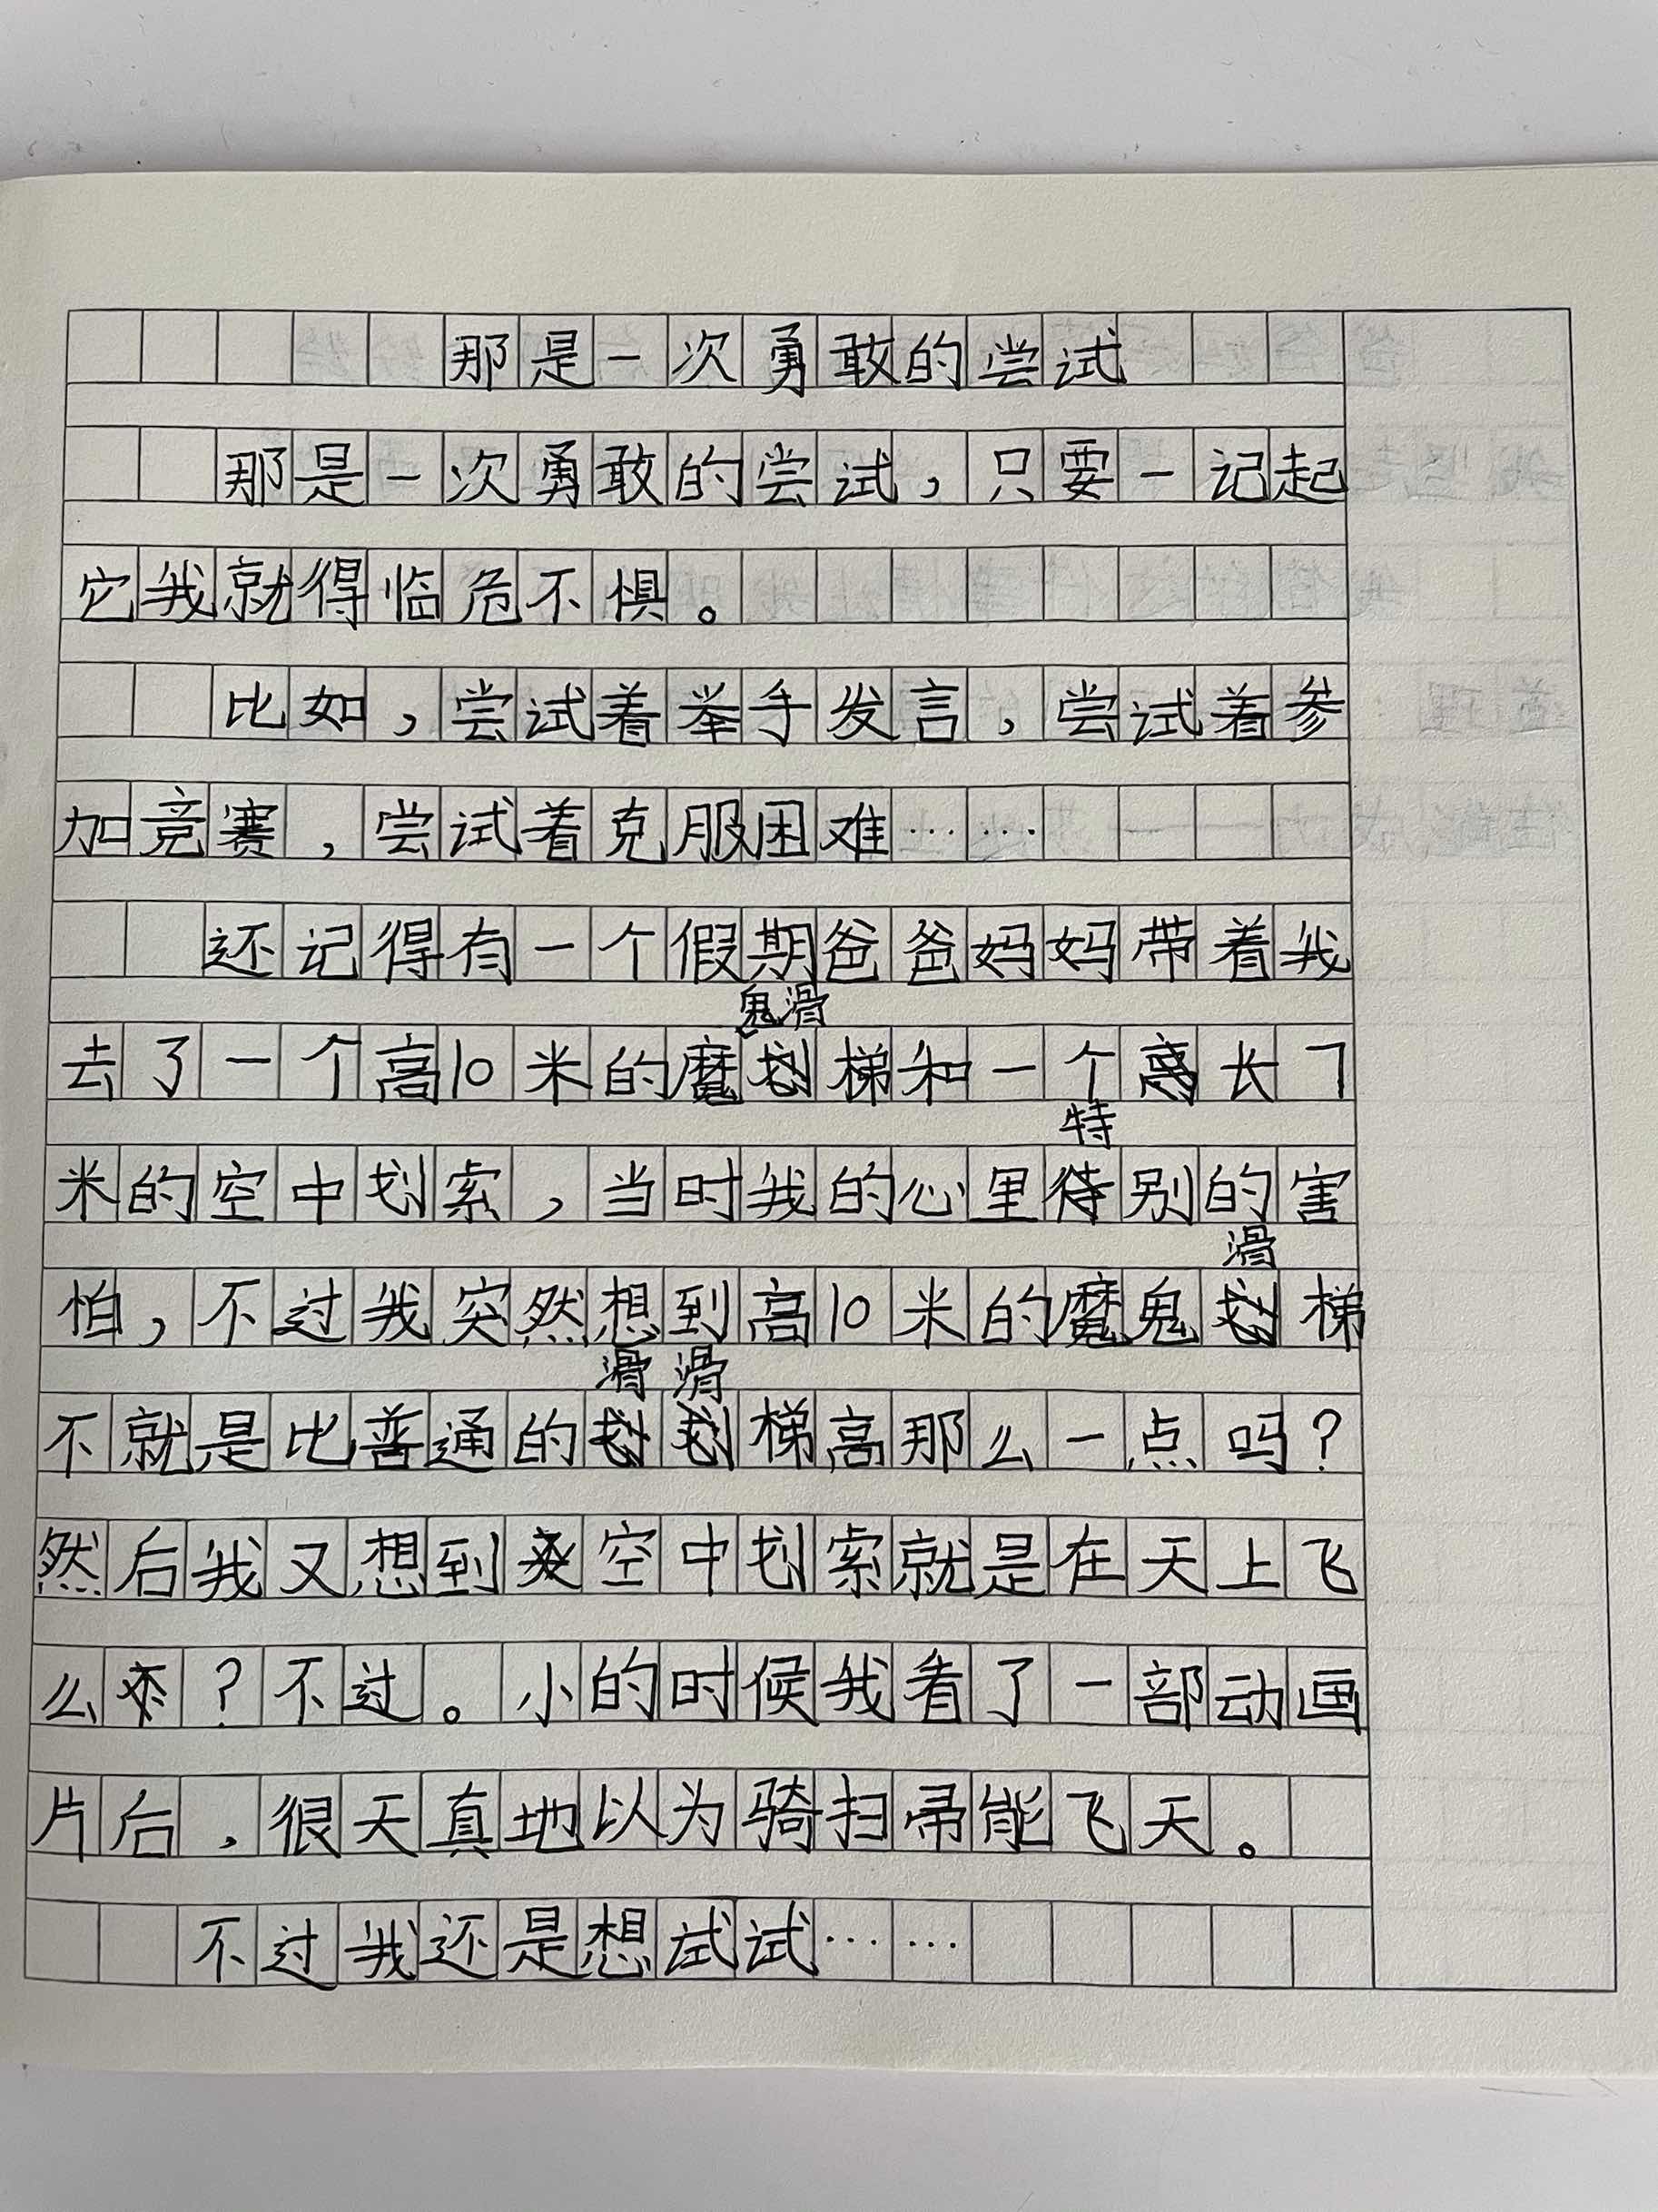 那是一次勇敢的尝试
那是一次勇敢的尝试，只要一记起
它我就得临危不惧。
比如，尝试着举手发言，尝试着参
加竞赛，尝试着克服困难……
还记得有一个假期爸爸妈妈带着我
鬼滑
去了一个高10米的魔梯和一个长7
特
米的空中划索，当时我的心里别的害
滑
怕，不过我突然想到高10米的魔鬼梯
滑滑
不就是比普通的梯高那么一点吗？
然后我又想到空中划索就是在天上飞
么？不过。小的时候我看了一部动画
片后，很天真地以为骑扫帚能飞天。
不过我还是想试试……